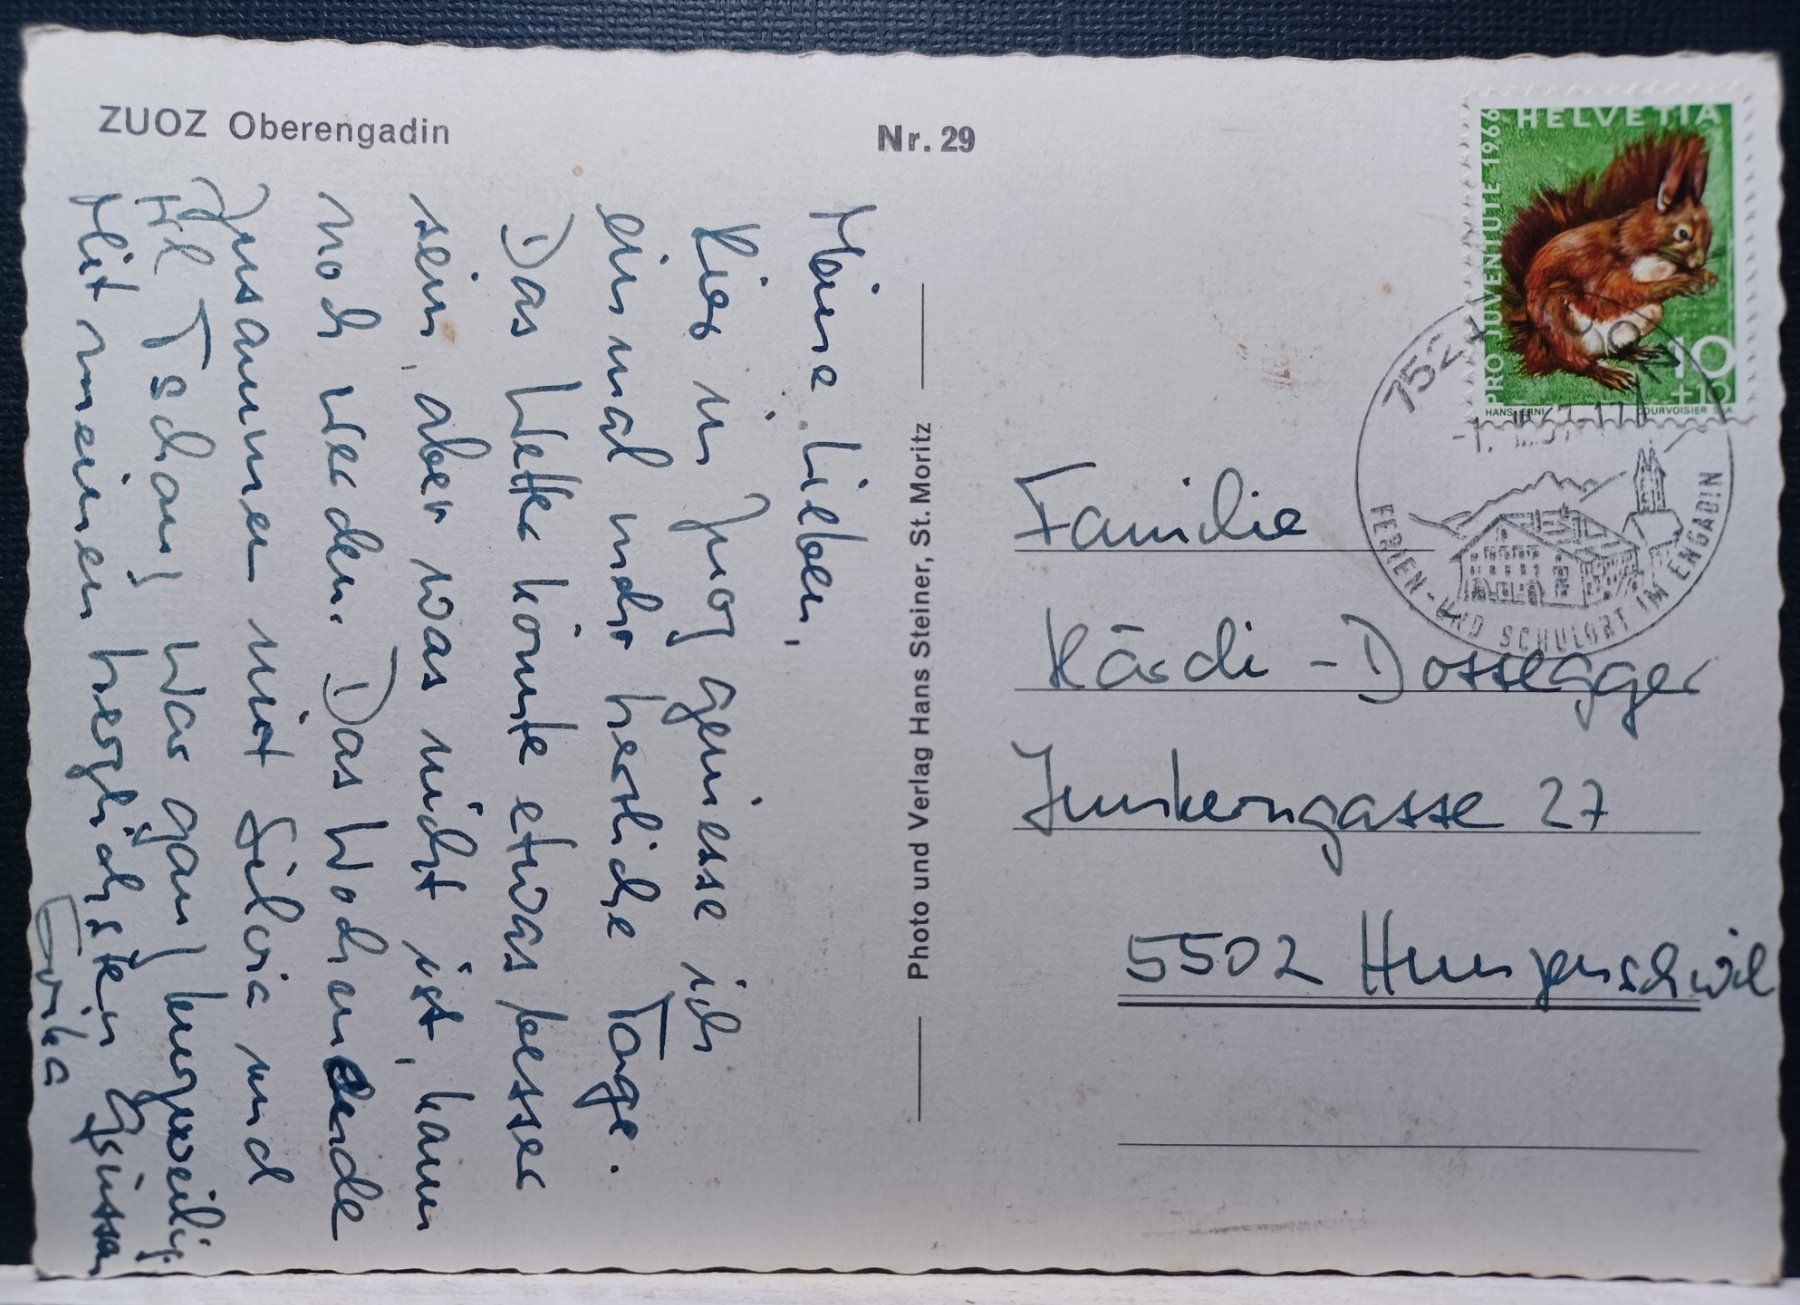 ZUOZ Oberengadin
Nr. 29
Meine Lieben,
Hier in Zuoz geniesse ich
einmal mehr herrliche Tage.
Das Wetter könnte etwas besser
sein, aber was nicht ist, kann
noch werden. Das Wochenende
zusammen mit Silvia und
Tschanz war ganz kurzweilig.
Mit meinen herzlichsten Grüssen
Erika
Photo und Verlag Hans Steiner, St. Moritz
HELVETIA
PRO JUVENTUTE 1966
10
+10
HANS ERNI
COURVOISIER S.A.
7524 ZUOZ
FERIEN- UND SCHULORT IM ENGADIN
Familie
-Dössegger
Junkerngasse 27
5502 Hunzenschwil